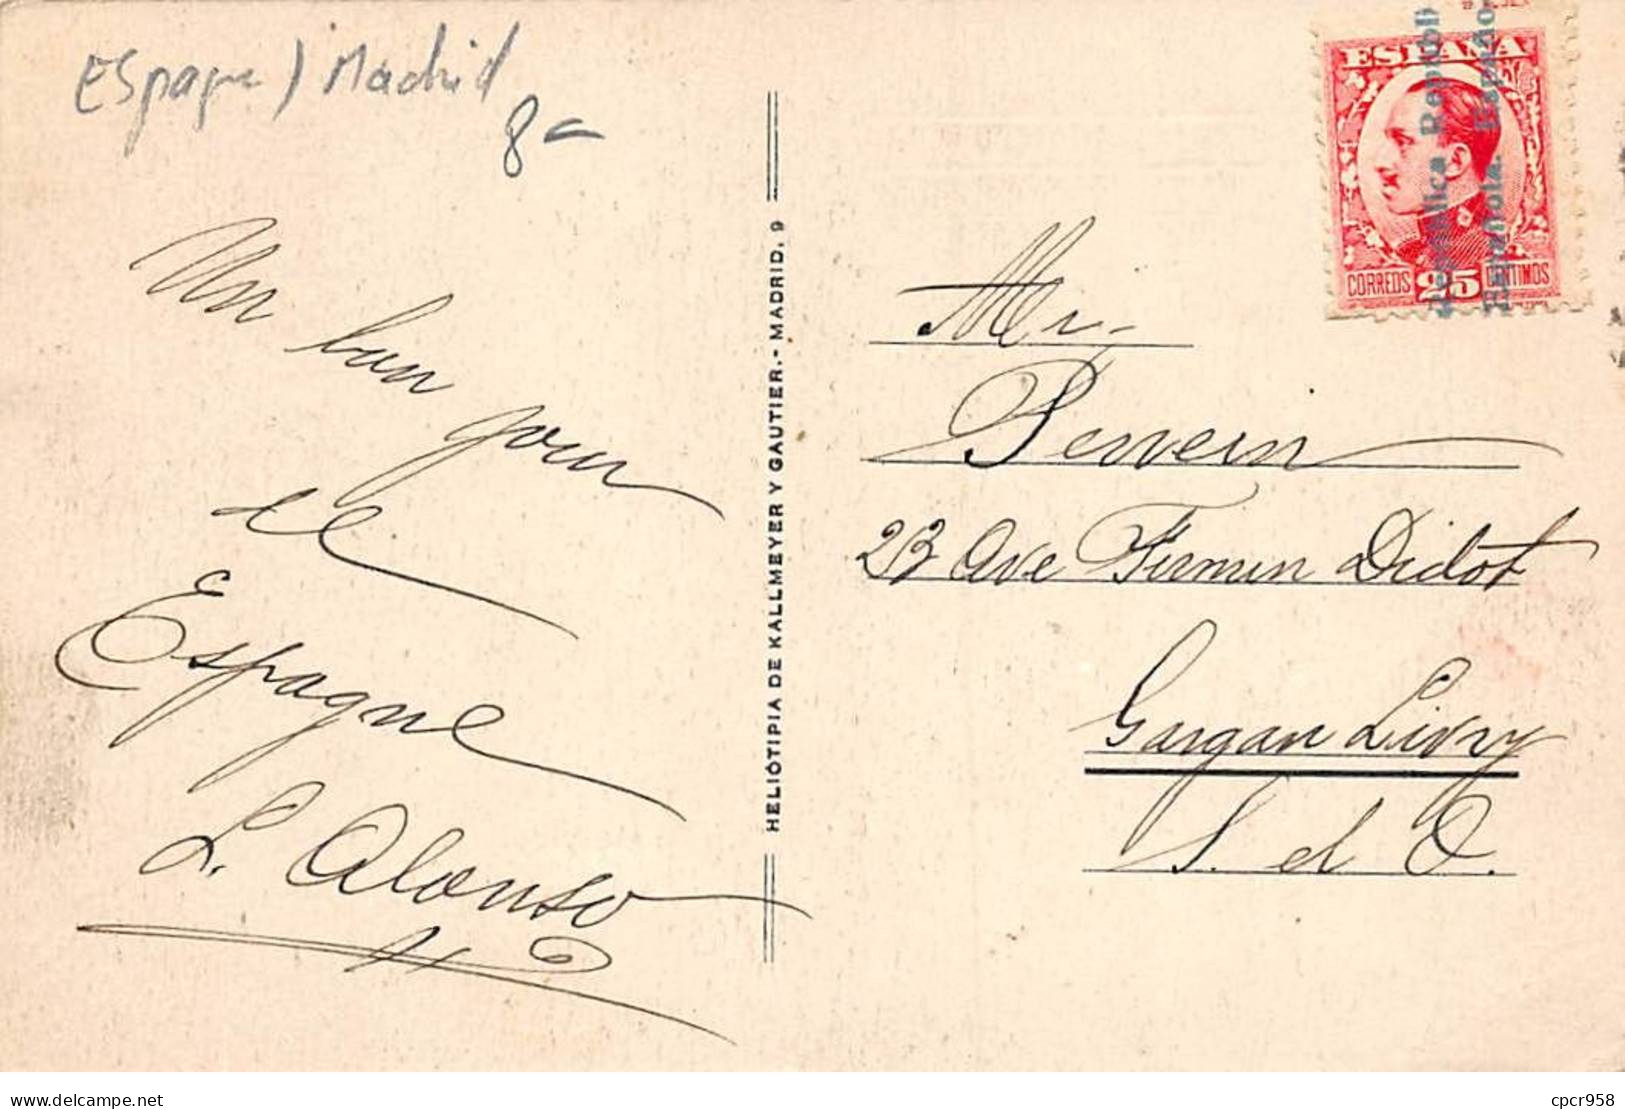 Espagne / Madrid
8 -
Un bon jour
de
Espagne
L. Alonso
HELIOTIPIA DE KALLMEYER Y GAUTIER.- MADRID. 9
ESPAÑA
CORREOS 25 CENTIMOS
República
Española.
Mr.
23 Ave Firmin Didot
Gargan Livry
S. et O.
delcampe.net
cpcr958